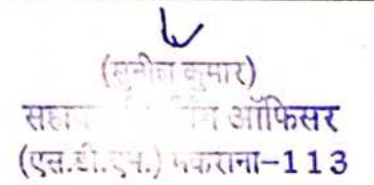 (सुनील कुमार)
सहायक ऑफिसर
(एस.डी.एम.) मकराना-113